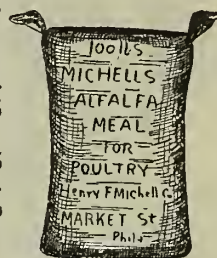 100 lbs
MICHELLS
ALFALFA
MEAL
FOR
POULTRY
Henry F Michell C.
MARKET St
Phila